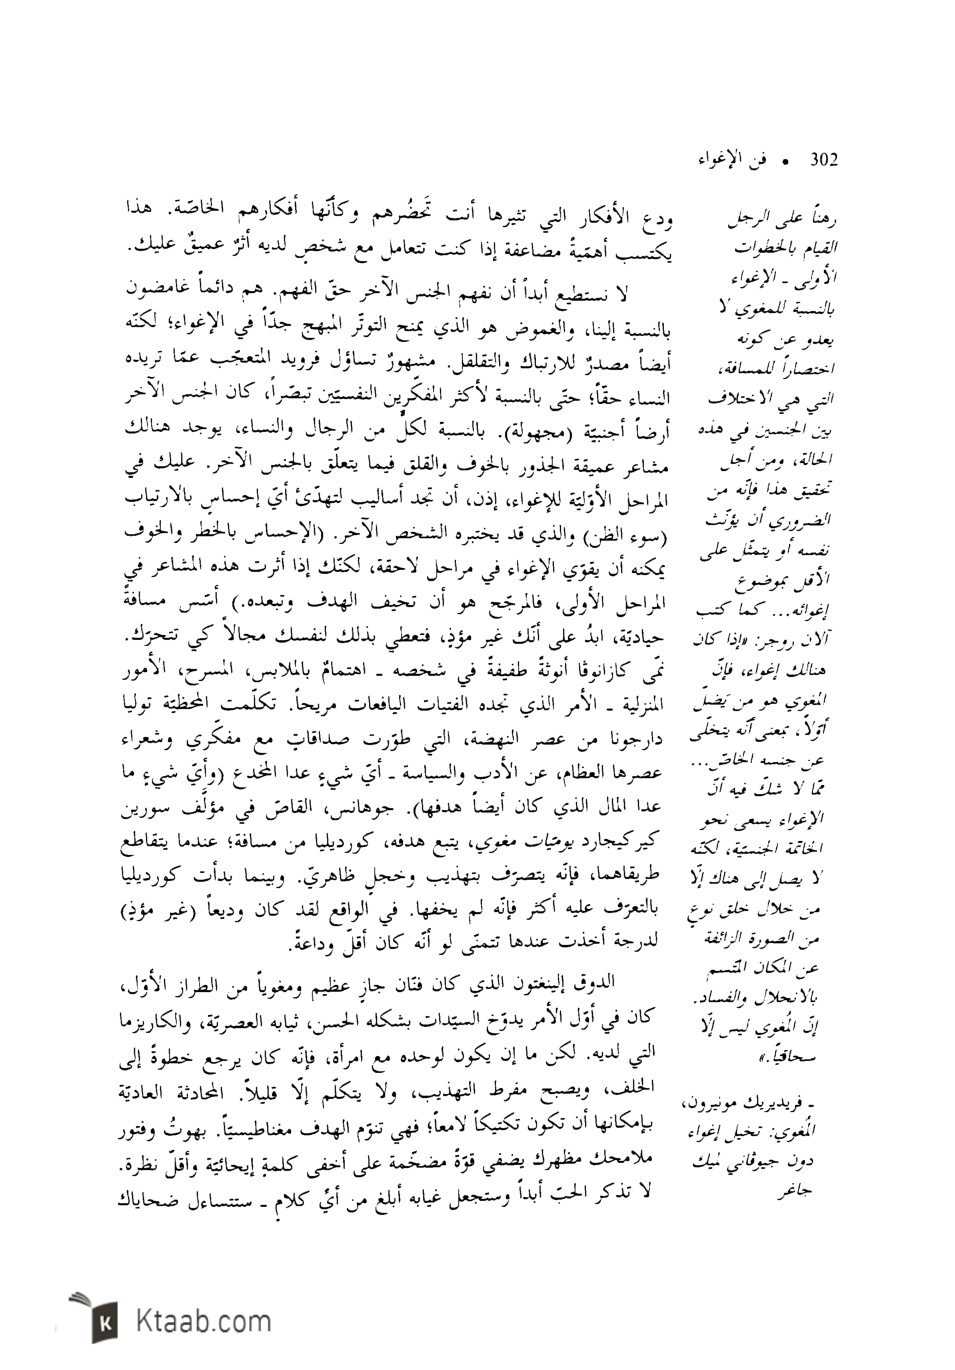 302 • فن الإغواء
ودع الأفكار التي تثيرها أنت تَحضُرهم وكأنّها أفكارهم الخاصّة. هذا
يكتسب أهمّيةً مضاعفة إذا كنت تتعامل مع شخصٍ لديه أثرٌ عميقٌ عليك.
لا نستطيع أبداً أن نفهم الجنس الآخر حقّ الفهم. هم دائماً غامضون
بالنسبة إلينا، والغموض هو الذي يمنح التوتّر المبهج جدّاً في الإغواء؛ لكنّه
أيضاً مصدرٌ للارتباك والتقلقل. مشهورٌ تساؤل فرويد المتعجّب عمّا تريده
النساء حقّاً؛ حتّى بالنسبة لأكثر المفكّرين النفسيّين تبصّراً، كان الجنس الآخر
أرضاً أجنبيّة (مجهولة). بالنسبة لكلٍّ من الرجال والنساء، يوجد هنالك
مشاعر عميقة الجذور بالخوف والقلق فيما يتعلّق بالجنس الآخر. عليك في
المراحل الأوّليّة للإغواء، إذن، أن تجد أساليب لتهدّئ أيّ إحساسٍ بالارتياب
(سوء الظن) والذي قد يختبره الشخص الآخر. (الإحساس بالخطر والخوف
يمكنه أن يقوّي الإغواء في مراحل لاحقة، لكنّك إذا أثرت هذه المشاعر في
المراحل الأولى، فالمرجّح هو أن تخيف الهدف وتبعده.) أسّس مسافةً
حياديّة، ابدُ على أنّك غير مؤذٍ، فتعطي بذلك لنفسك مجالاً كي تتحرّك.
نمّى كازانوڤا أنوثةً طفيفةً في شخصه ـ اهتمامٌ بالملابس، المسرح، الأمور
المنزلية ـ الأمر الذي تجده الفتيات اليافعات مريحاً. تكلّمت المحظيّة توليا
دارجونا من عصر النهضة، التي طوّرت صداقاتٍ مع مفكّري وشعراء
عصرها العظام، عن الأدب والسياسة ـ أيّ شيءٍ عدا المخدع (وأيّ شيءٍ ما
عدا المال الذي كان أيضاً هدفها). جوهانس، القاصّ في مؤلَّف سورين
كيركيجارد يوميّات مغوي، يتبع هدفه، كورديليا من مسافة؛ عندما يتقاطع
طريقاهما، فإنّه يتصرّف بتهذيب وخجلٍ ظاهريّ. وبينما بدأت كورديليا
بالتعرّف عليه أكثر فإنّه لم يخفها. في الواقع لقد كان وديعاً (غير مؤذٍ)
لدرجة أخذت عندها تتمنّى لو أنّه كان أقلّ وداعةً.
الدوق إلينغتون الذي كان فنّان جازٍ عظيم ومغوياً من الطراز الأوّل،
كان في أوّل الأمر يدوّخ السيّدات بشكله الحسن، ثيابه العصريّة، والكاريزما
التي لديه. لكن ما إن يكون لوحده مع امرأة، فإنّه كان يرجع خطوةً إلى
الخلف، ويصبح مفرط التهذيب، ولا يتكلّم إلّا قليلاً. المحادثة العاديّة
بإمكانها أن تكون تكتيكاً لامعاً؛ فهي تنوّم الهدف مغناطيسيّاً. بهوتُ وفتور
ملامحك مظهرك يضفي قوّةً مضخّمة على أخفى كلمةٍ إيحائيّة وأقلّ نظرة.
لا تذكر الحبّ أبداً وستجعل غيابه أبلغ من أيّ كلامٍ ـ ستتساءل ضحاياك
رهناً على الرجل
القيام بالخطوات
الأولى ـ الإغواء
بالنسبة للمغوي لا
يعدو عن كونه
اختصاراً للمسافة،
التي هي الاختلاف
بين الجنسين في هذه
الحالة، ومن أجل
تحقيق هذا فإنّه من
الضروري أن يؤنّث
نفسه أو يتمثّل على
الأقل بموضوع
إغوائه... كما كتب
آلان روجر: «إذا كان
هنالك إغواء، فإنّ
المغوي هو من يَضلّ
أوّلاً، بمعنى أنّه يتخلّى
عن جنسه الخاصّ...
ممّا لا شكّ فيه أنّ
الإغواء يسعى نحو
الخاتمة الجنسيّة، لكنّه
لا يصل إلى هناك إلّا
من خلال خلق نوعٍ
من الصورة الزائفة
عن المكان المتّسم
بالانحلال والفساد.
إنّ المُغوي ليس إلّا
سحاقيّاً.»
ـ فريديريك مونيرون،
المُغوي: تخيل إغواء
دون جيوڤاني لميك
جاغر
Ktaab.com